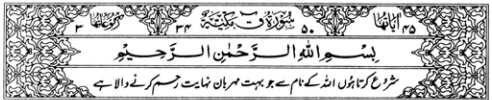 اٰیَاتُهَا ۴۵ ۵۰ سُوْرَةُ قٓ مَكِّیَّةٌ ۳۴ رُكُوْعَاتُهَا ۳
بِسْمِ اللّٰهِ الرَّحْمٰنِ الرَّحِیْمِ
شروع کرتا ہوں اللہ کے نام سے جو بہت مہربان نہایت رحم کرنے والا ہے